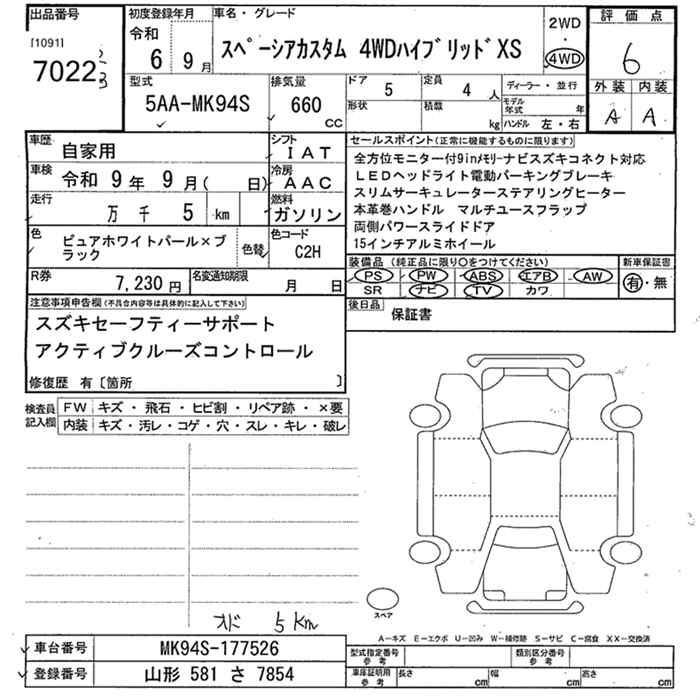 出品番号
[1091]
7022
初度登録年月
令和
6 9月
車名・グレード
スペーシアカスタム 4WDハイブリッドXS
2WD
・
4WD
評価点
6
外装 内装
A A
型式
5AA-MK94S
排気量
660
CC
ドア
5
定員
4人
形状
積載
kg
ディーラー・並行
モデル年式 年
ハンドル 左・右
車歴
自家用
シフト
IAT
車検
令和 9年 9月( 日)
冷房
AAC
走行
万 千 5 km
燃料
ガソリン
色
ピュアホワイトパール×ブ
ラック
色替
色コード
C2H
R券
7,230円
名変通知期限
月 日
セールスポイント(正常に機能するものに限ります)
全方位モニター付9inメモリーナビスズキコネクト対応
LEDヘッドライト電動パーキングブレーキ
スリムサーキュレーターステアリングヒーター
本革巻ハンドル マルチユースフラップ
両側パワースライドドア
15インチアルミホイール
装備品(純正品に限り○をつけてください)
PS PW ABS エアB AW
SR ナビ TV カワ
新車保証書
有・無
後日品
保証書
注意事項申告欄(不具合内容等は具体的に記入して下さい)
スズキセーフティーサポート
アクティブクルーズコントロール
修復歴 有〔箇所 〕
検査員
記入欄
FW キズ・飛石・ヒビ割・リペア跡・×要
内装 キズ・汚レ・コゲ・穴・スレ・キレ・破レ
スペア
オド 5km
A−キズ E−エクボ U−凹み W−補修跡 S−サビ C−腐食 XX−交換済
車台番号
MK94S-177526
登録番号
山形 581 さ 7854
型式指定番号
参考
類別区分番号
参考
車庫証明用
参考
長さ cm
幅 cm
高さ cm